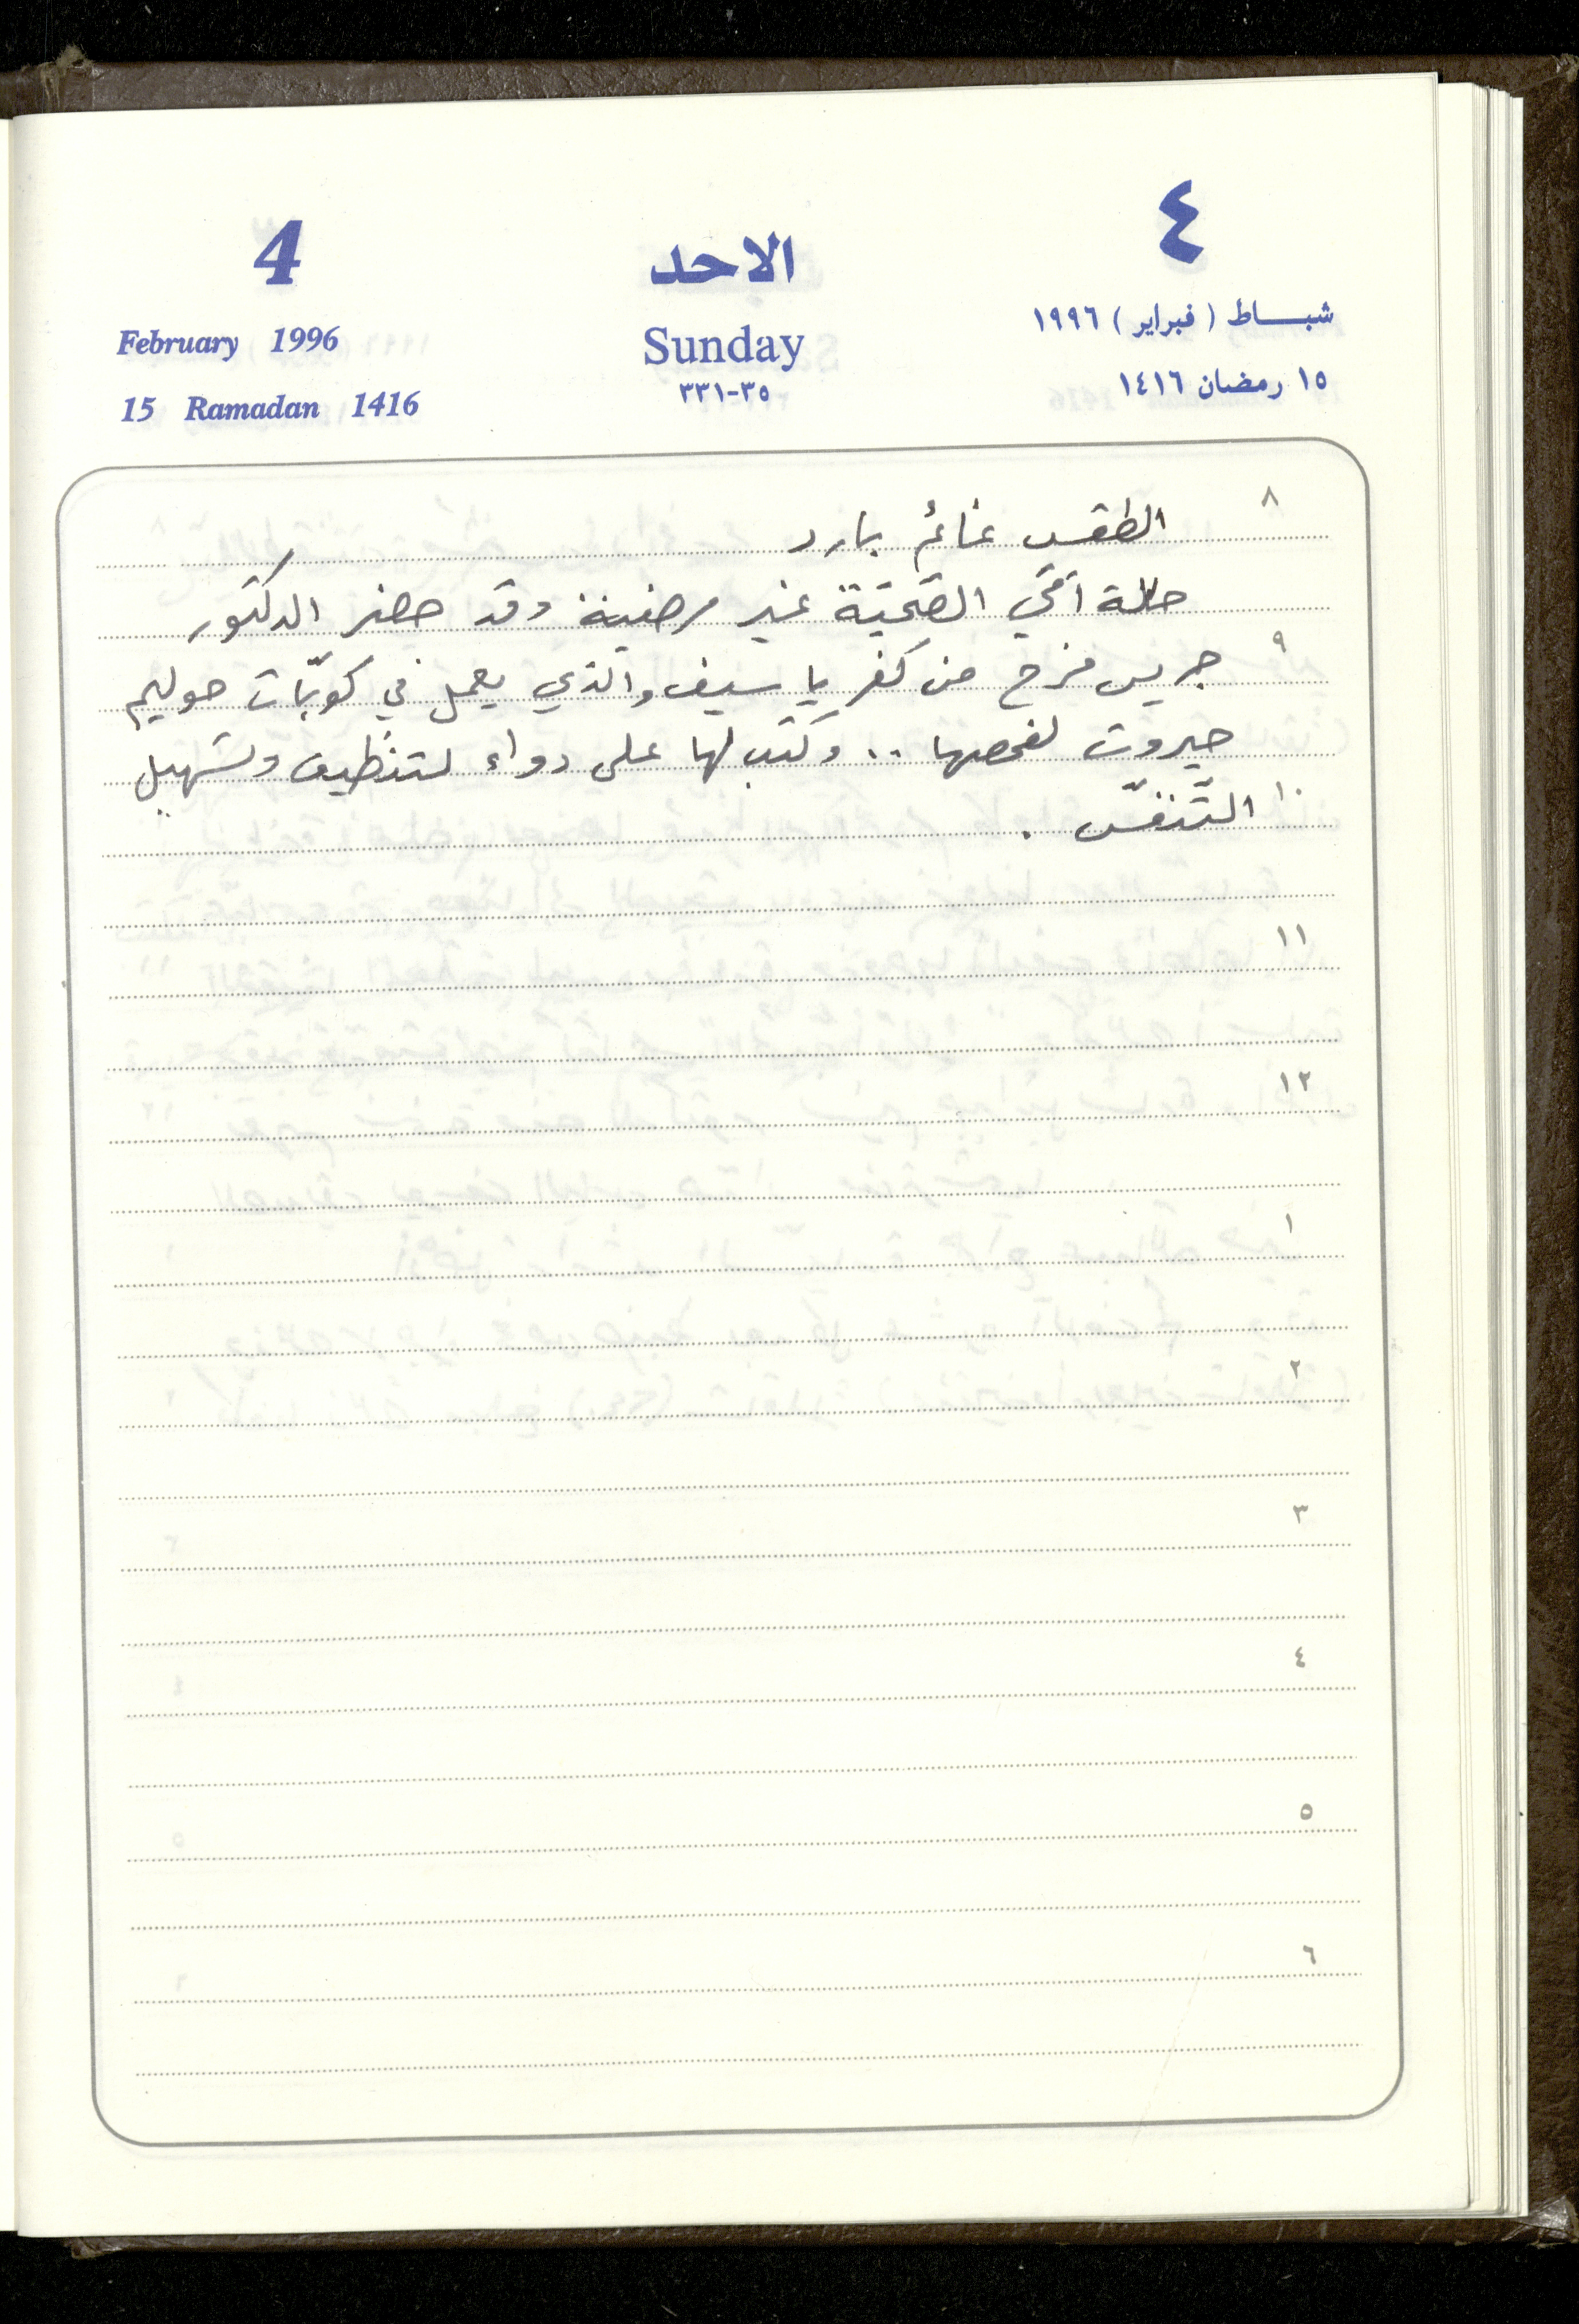 4 الاحد ٤
February 1996 Sunday شبـــاط ( فبراير ) ١٩٩٦
15 Ramadan 1416 ٣٣١-٣٥ ١٥ رمضان ١٤١٦
٨
الطقس غائم بارد
حالة أمّي الصّحيّة غير مرضية وقد حضر الدكتور
٩
جريس فرح من كفر ياسيف والذي يعمل في كوبّات حوليم
جيروت لفحصها .. وكتب لها على دواء لتنظيف وتسهيل
١٠
التّنفّس .
١١
١٢
١
٢
٣
٤
٥
٦